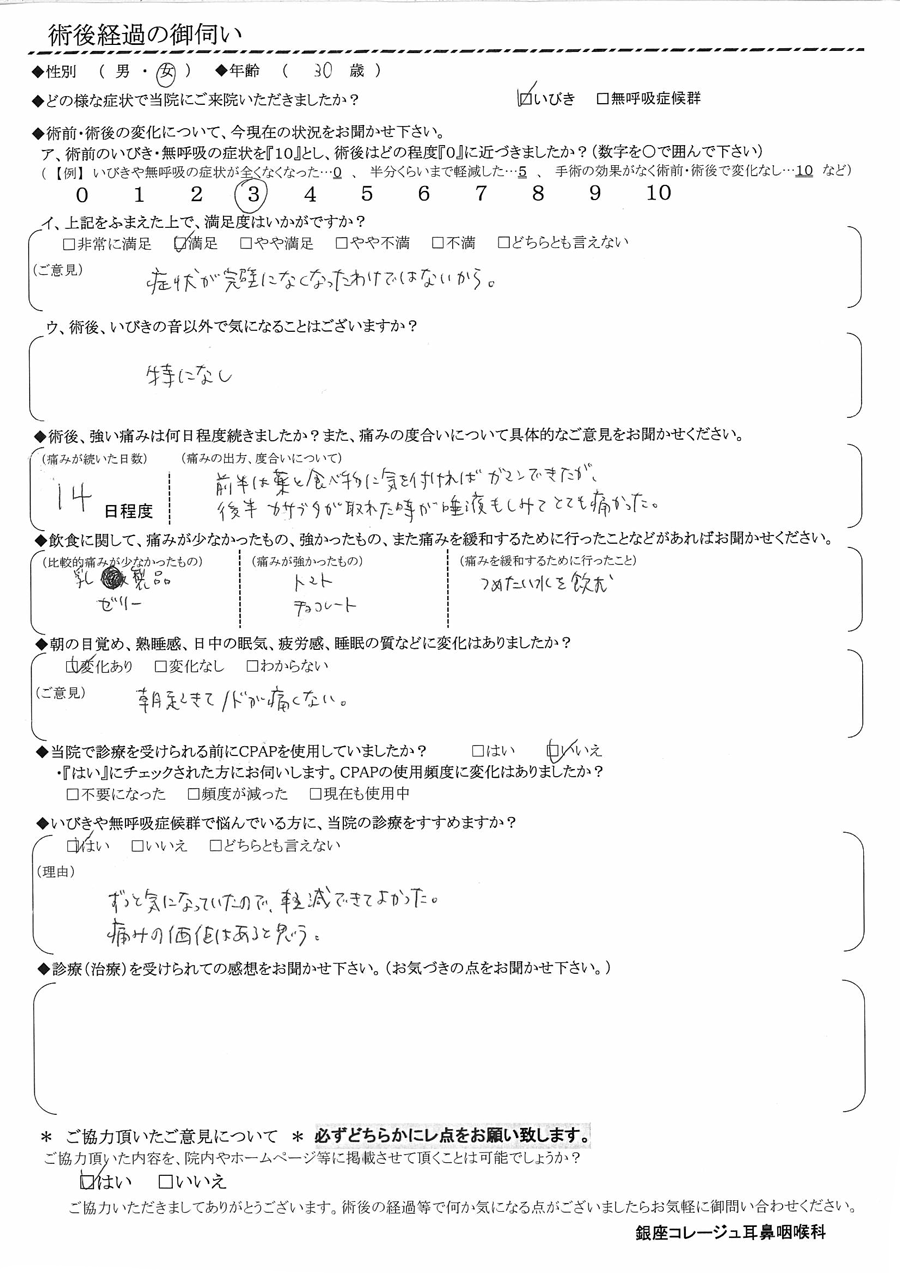 術後経過の御伺い
◆性別 ( 男 ・ 女 ) ◆年齢 ( 30 歳 )
◆どの様な症状で当院にご来院いただきましたか? ☑いびき □無呼吸症候群
◆術前・術後の変化について、今現在の状況をお聞かせ下さい。
ア、術前のいびき・無呼吸の症状を『10』とし、術後はどの程度『0』に近づきましたか?(数字を〇で囲んで下さい)
(【例】いびきや無呼吸の症状が全くなくなった…0 、 半分くらいまで軽減した…5 、 手術の効果がなく術前・術後で変化なし…10 など)
0 1 2 3 4 5 6 7 8 9 10
イ、上記をふまえた上で、満足度はいかがですか?
□非常に満足 ☑満足 □やや満足 □やや不満 □不満 □どちらとも言えない
(ご意見)
症状が完璧になくなったわけではないから。
ウ、術後、いびきの音以外で気になることはございますか?
特になし
◆術後、強い痛みは何日程度続きましたか?また、痛みの度合いについて具体的なご意見をお聞かせください。
(痛みが続いた日数) (痛みの出方、度合いについて)
前半は薬と食べ物に気を付ければガマンできたが、
14 日程度 後半カサブタが取れた時が唾液もしみてとても痛かった。
◆飲食に関して、痛みが少なかったもの、強かったもの、また痛みを緩和するために行ったことなどがあればお聞かせください。
(比較的痛みが少なかったもの) (痛みが強かったもの) (痛みを緩和するために行ったこと)
乳製品 トマト つめたい水を飲む
ゼリー チョコレート
◆朝の目覚め、熟睡感、日中の眠気、疲労感、睡眠の質などに変化はありましたか?
☑変化あり □変化なし □わからない
(ご意見)
朝起きてノドが痛くない。
◆当院で診療を受けられる前にCPAPを使用していましたか? □はい ☑いいえ
・『はい』にチェックされた方にお伺いします。CPAPの使用頻度に変化はありましたか?
□不要になった □頻度が減った □現在も使用中
◆いびきや無呼吸症候群で悩んでいる方に、当院の診療をすすめますか?
☑はい □いいえ □どちらとも言えない
(理由)
ずっと気になっていたので、軽減できてよかった。
痛みの価値はあると思う。
◆診療(治療)を受けられての感想をお聞かせ下さい。(お気づきの点をお聞かせ下さい。)
＊ ご協力頂いたご意見について ＊ 必ずどちらかにレ点をお願い致します。
ご協力頂いた内容を、院内やホームページ等に掲載させて頂くことは可能でしょうか?
☑はい □いいえ
ご協力いただきましてありがとうございます。術後の経過等で何か気になる点がございましたらお気軽に御問い合わせください。
銀座コレージュ耳鼻咽喉科